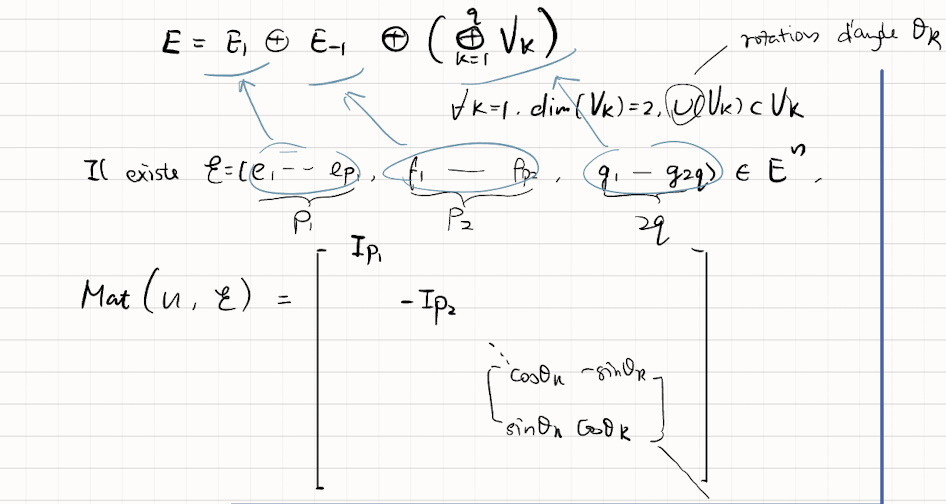 E = E₁ ⊕ E₋₁ ⊕ (⊕_{k=1}^{q} V_k)
rotation d'angle θ_k
∀ k=1. dim(V_k)=2, u(V_k) ⊂ V_k
Il existe ℰ=(e₁ -- e_{p₁}, f₁ — f_{p₂}, g₁ - g_{2q}) ∈ Eⁿ,
p₁ p₂ 2q
Mat(u, ℰ) =
I_{p₁}
-I_{p₂}
cosθ_k -sinθ_k
sinθ_k cosθ_k